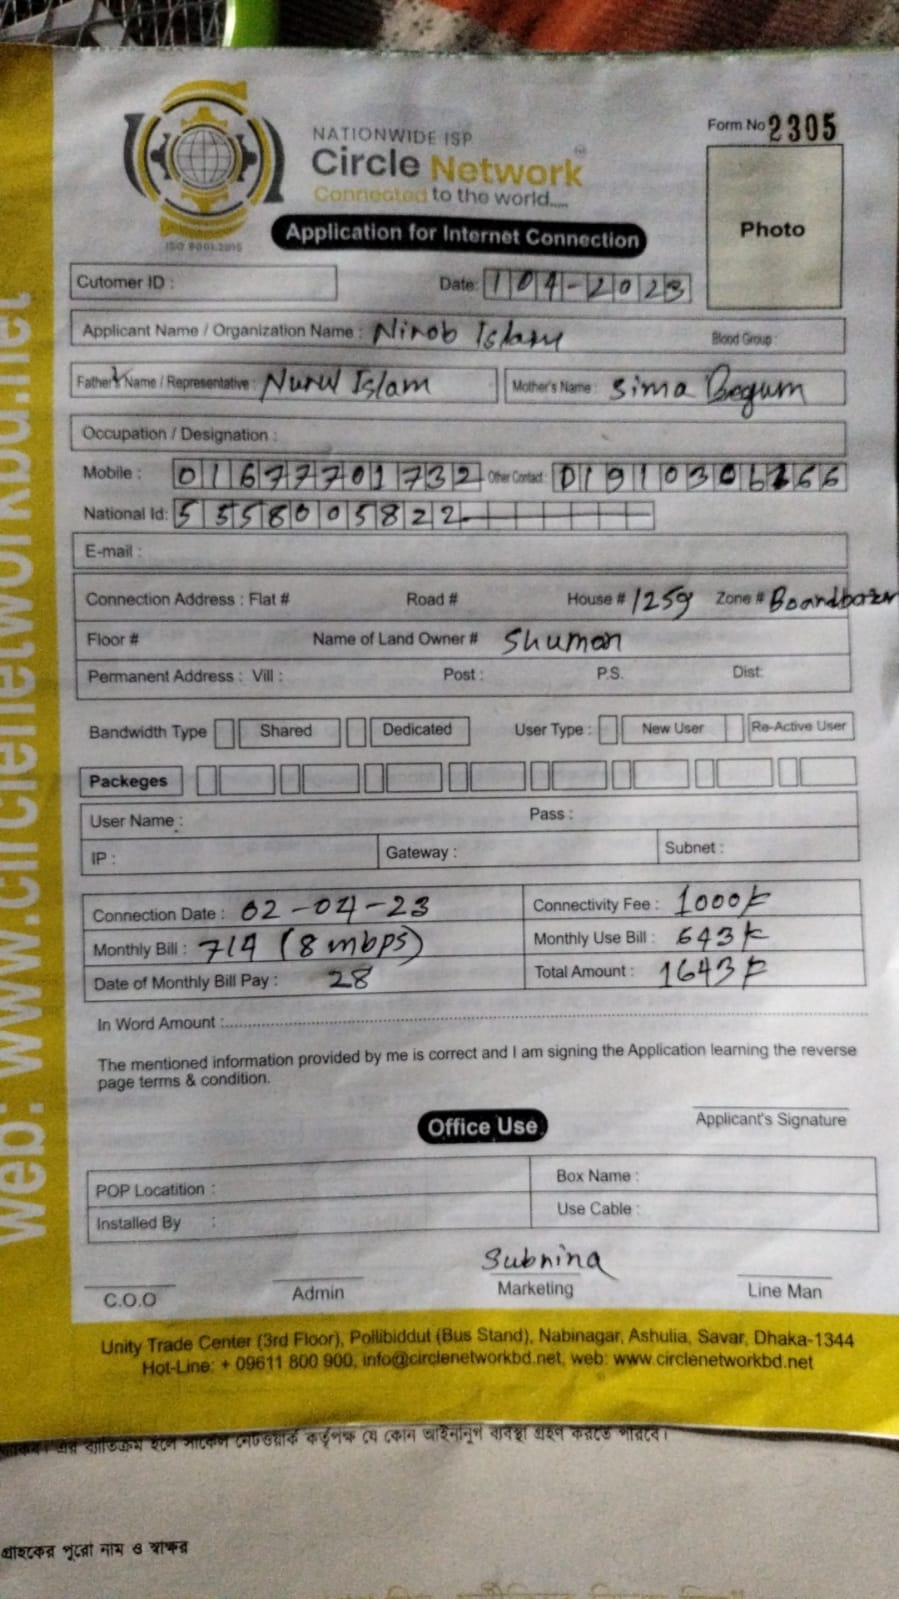 web: www.circlenetworkbd.net
NATIONWIDE ISP
Circle Network
Connected to the world.....
ISO 9001:2015
Application for Internet Connection
Form No 2305
Photo
Cutomer ID :
Date: 104-2023
Applicant Name / Organization Name : Nirob Islam Blood Group :
Father's Name / Representative : Nurul Islam Mother's Name : Sima Begum
Occupation / Designation :
Mobile : 01677701732 Other Contact :
National Id: 5558005822
E-mail :
Connection Address : Flat # Road # House # 1259 Zone # Boardbazar
Floor # Name of Land Owner # Shuman
Permanent Address : Vill : Post : P.S. Dist:
Bandwidth Type Shared Dedicated User Type : New User Re-Active User
Packeges
User Name : Pass :
IP : Gateway : Subnet :
Connection Date : 02-04-23 Connectivity Fee : 1000
Monthly Bill : 714 (8 mbps) Monthly Use Bill : 643
Date of Monthly Bill Pay : 28 Total Amount : 1643
In Word Amount :
The mentioned information provided by me is correct and I am signing the Application learning the reverse
page terms & condition.
Applicant's Signature
Office Use
POP Locatition : Box Name :
Installed By : Use Cable :
C.O.O Admin Marketing Line Man
Unity Trade Center (3rd Floor), Pollibiddut (Bus Stand), Nabinagar, Ashulia, Savar, Dhaka-1344
Hot-Line: + 09611 800 900, info@circlenetworkbd.net, web: www.circlenetworkbd.net
ব্যতিক্রম হলে সার্কেল নেটওয়ার্ক কর্তৃপক্ষ যে কোন আইনানুগ ব্যবস্থা গ্রহণ করতে পারবে।
গ্রাহকের পুরো নাম ও স্বাক্ষর